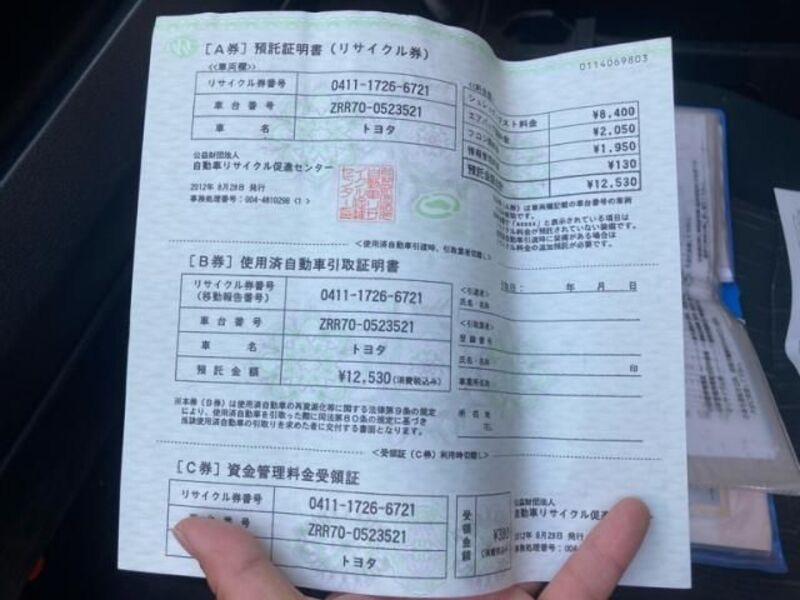 [A券] 預託証明書(リサイクル券)
0114069803
≪車両欄≫
リサイクル券番号 0411-1726-6721
車台番号 ZRR70-0523521
車名 トヨタ
料金 ¥8,400
エアバッグ ¥2,050
フロン ¥1,950
¥130
預託金 ¥12,530
公益財団法人
自動車リサイクル促進センター
2012年 8月28日 発行
事務処理番号:004-4810298 <1>
<使用済自動車引渡時、引取業者切離し>
[B券] 使用済自動車引取証明書
年 月 日
リサイクル券番号
(移動報告番号) 0411-1726-6721
車台番号 ZRR70-0523521
車名 トヨタ
預託金額 ¥12,530(消費税込み)
<引渡者>
氏名・名称
<引取業者>
登録番号
氏名・名称 印
事業所名
所在地
TEL
※本券(B券)は使用済自動車の再資源化等に関する法律第9条の規定
により、使用済自動車を引取った際に同法第80条の規定に基づき
当該使用済自動車の引取りを求めた者に交付する書面となります。
<受領証(C券)利用時切離し>
[C券] 資金管理料金受領証
リサイクル券番号 0411-1726-6721
車台番号 ZRR70-0523521
トヨタ
受領金額
公益財団法人
自動車リサイクル促
2012年 8月28日 発行